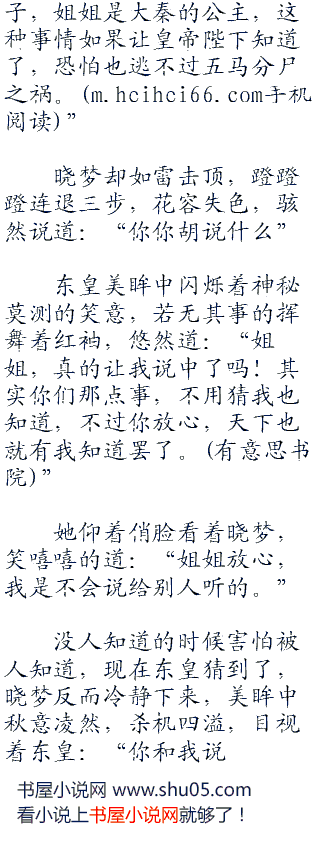 子，姐姐是大秦的公主，这
种事情如果让皇帝陛下知道
了，恐怕也逃不过五马分尸
之祸。(m.hcihci66.com手机
阅读)”
晓梦却如雷击顶，蹬蹬
蹬连退三步，花容失色，骇
然说道：“你你胡说什么”
东皇美眸中闪烁着神秘
莫测的笑意，若无其事的挥
舞着红袖，悠然道：“姐
姐，真的让我说中了吗！其
实你们那点事，不用猜我也
知道，不过你放心，天下也
就有我知道罢了。(有意思书
院)”
她仰着俏脸看着晓梦，
笑嘻嘻的道：“姐姐放心，
我是不会说给别人听的。”
没人知道的时候害怕被
人知道，现在东皇猜到了，
晓梦反而冷静下来，美眸中
秋意凌然，杀机四溢，目视
着东皇：“你和我说
书屋小说网 www.shu05.com
看小说上书屋小说网就够了！